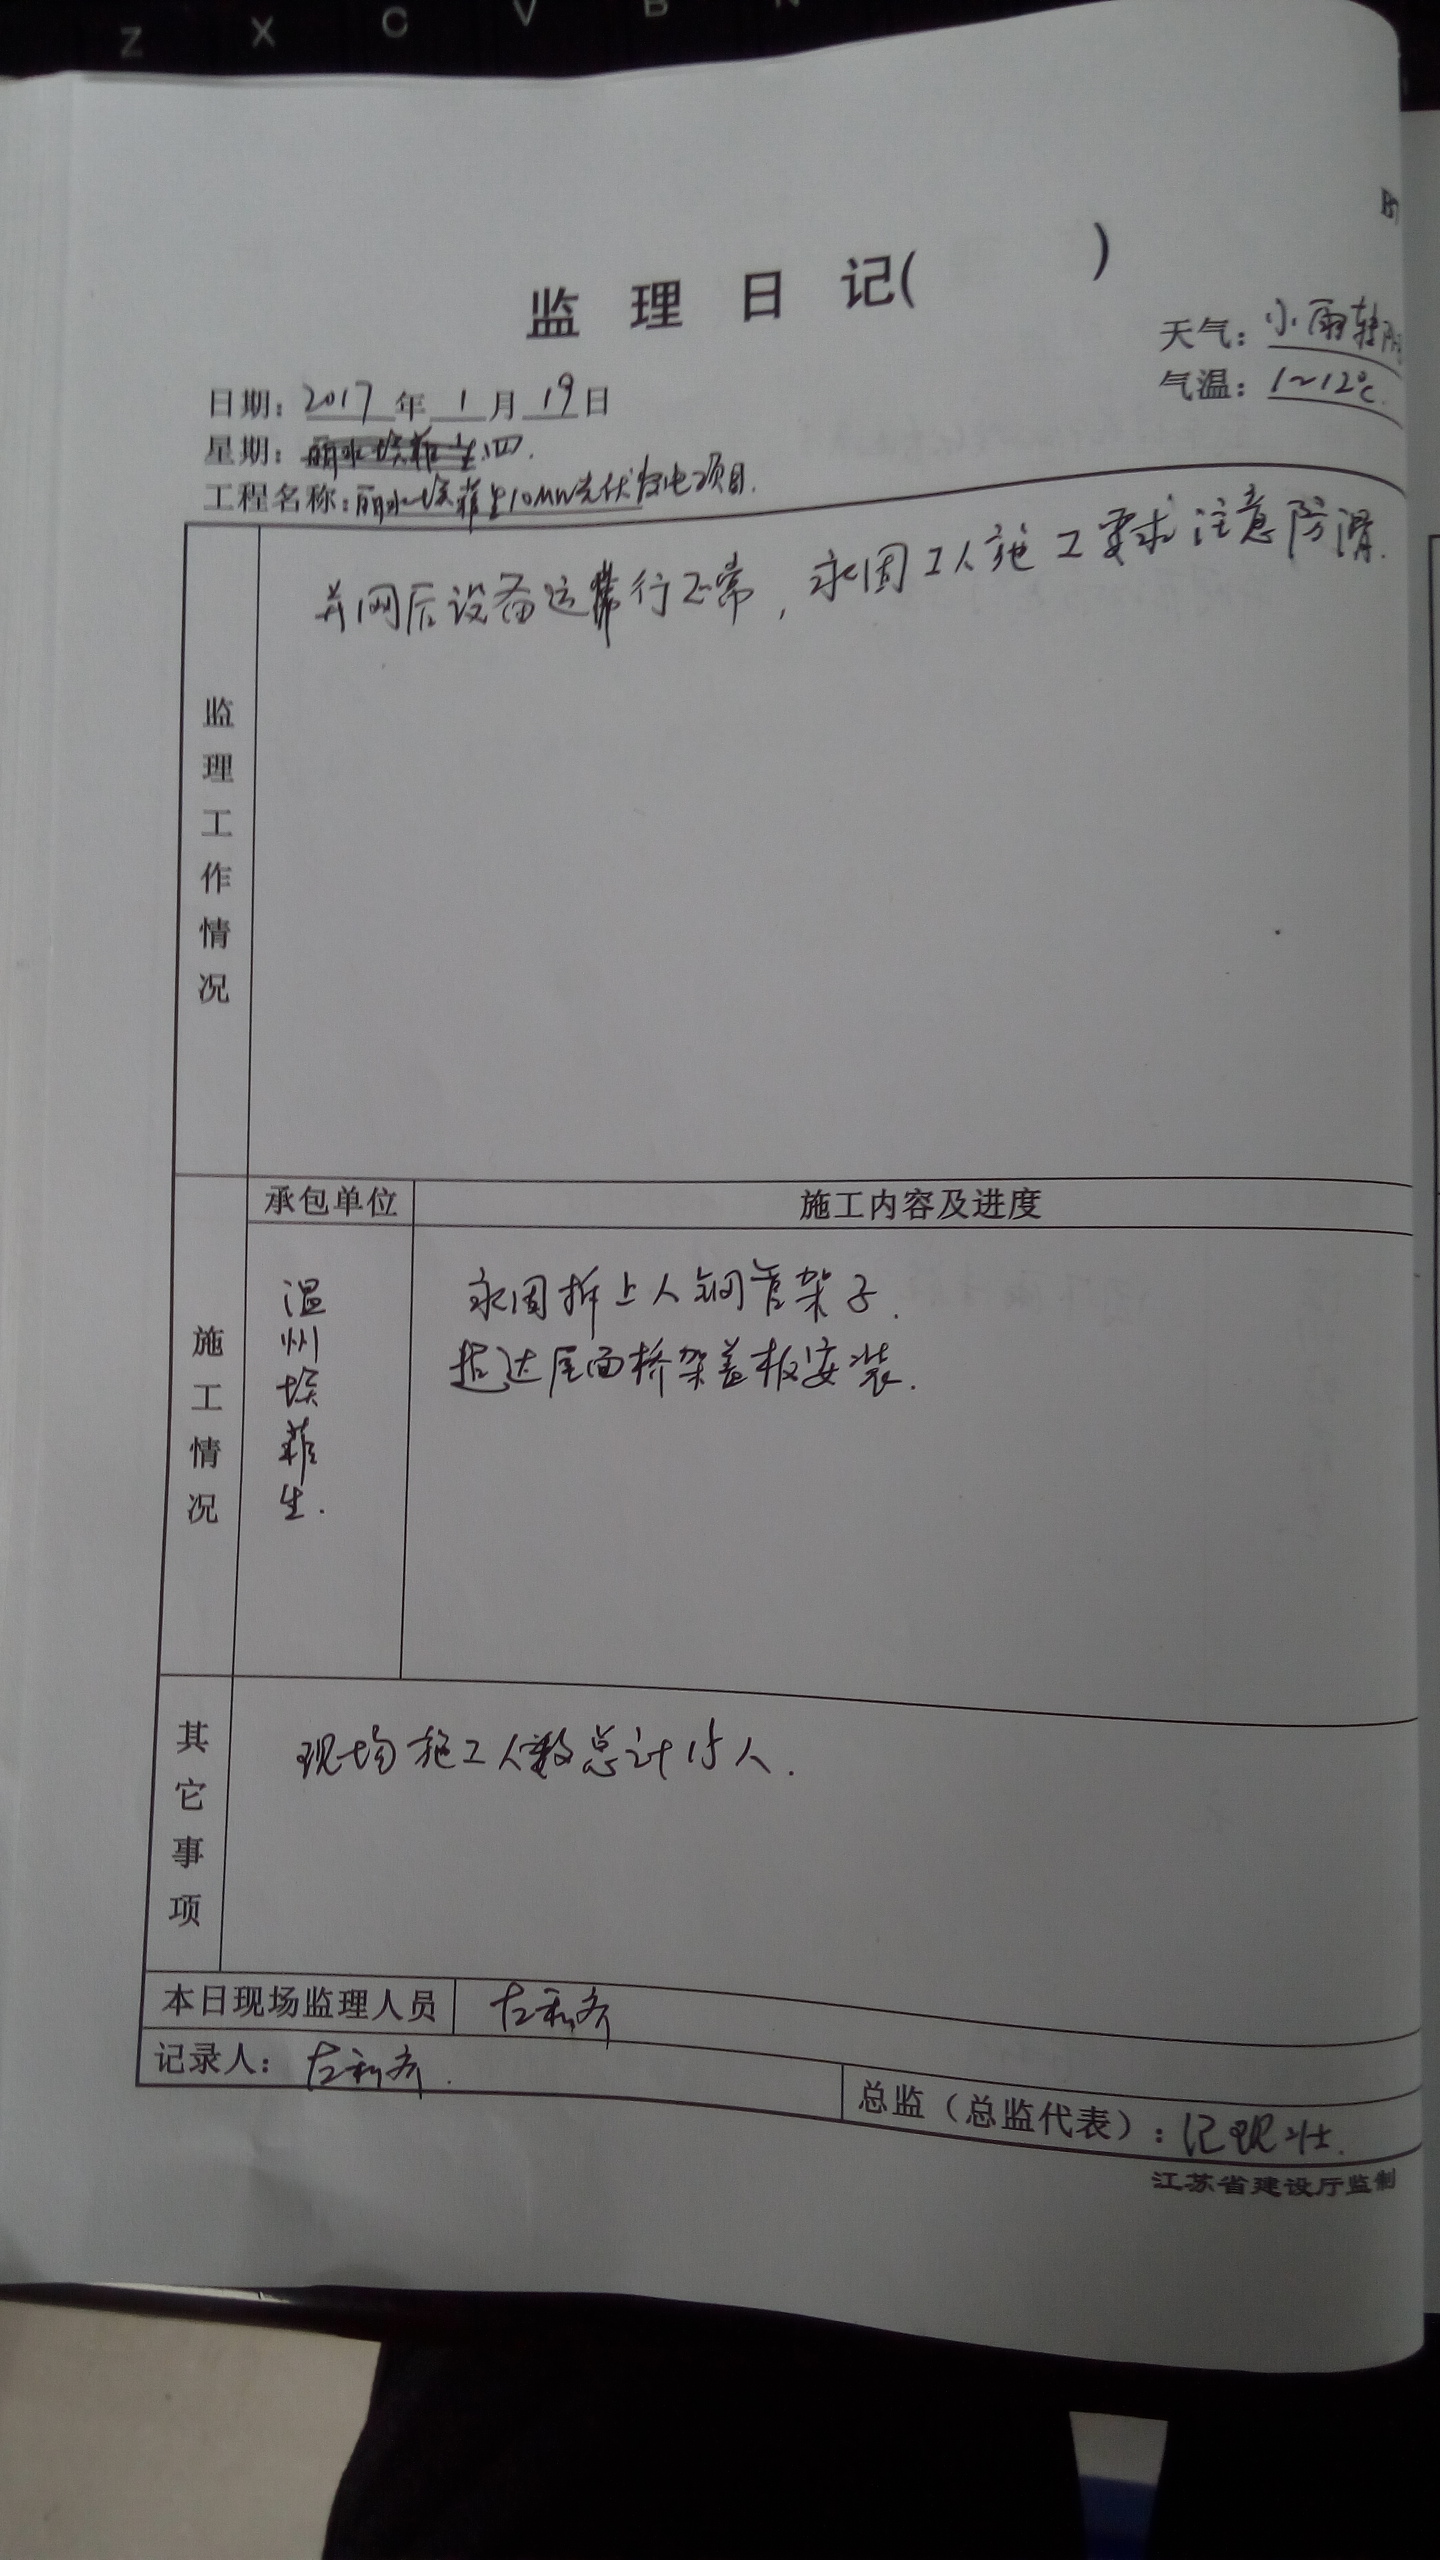 Z X C V B N
监理日记( )
天气：小雨转阴
气温：1~12℃.
日期：2017年1月19日
星期：四.
工程名称：丽水埃菲生10MW光伏发电项目.
监理工作情况
并网后设备运行正常，永固工人施工要求注意防滑.
承包单位 施工内容及进度
施工情况
温州埃菲生.
永固拆上人钢管架子.
屋面桥架盖板安装.
其它事项
现场施工人数总计15人.
本日现场监理人员
记录人：
总监（总监代表）：
江苏省建设厅监制